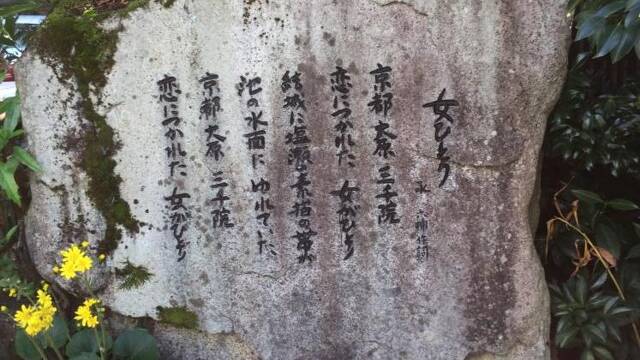 女ひとり
永 六輔作詞
京都 大原 三千院
恋につかれた 女がひとり
結城に塩瀬の素描の帯が
池の水面に ゆれていた
京都 大原 三千院
恋につかれた 女がひとり